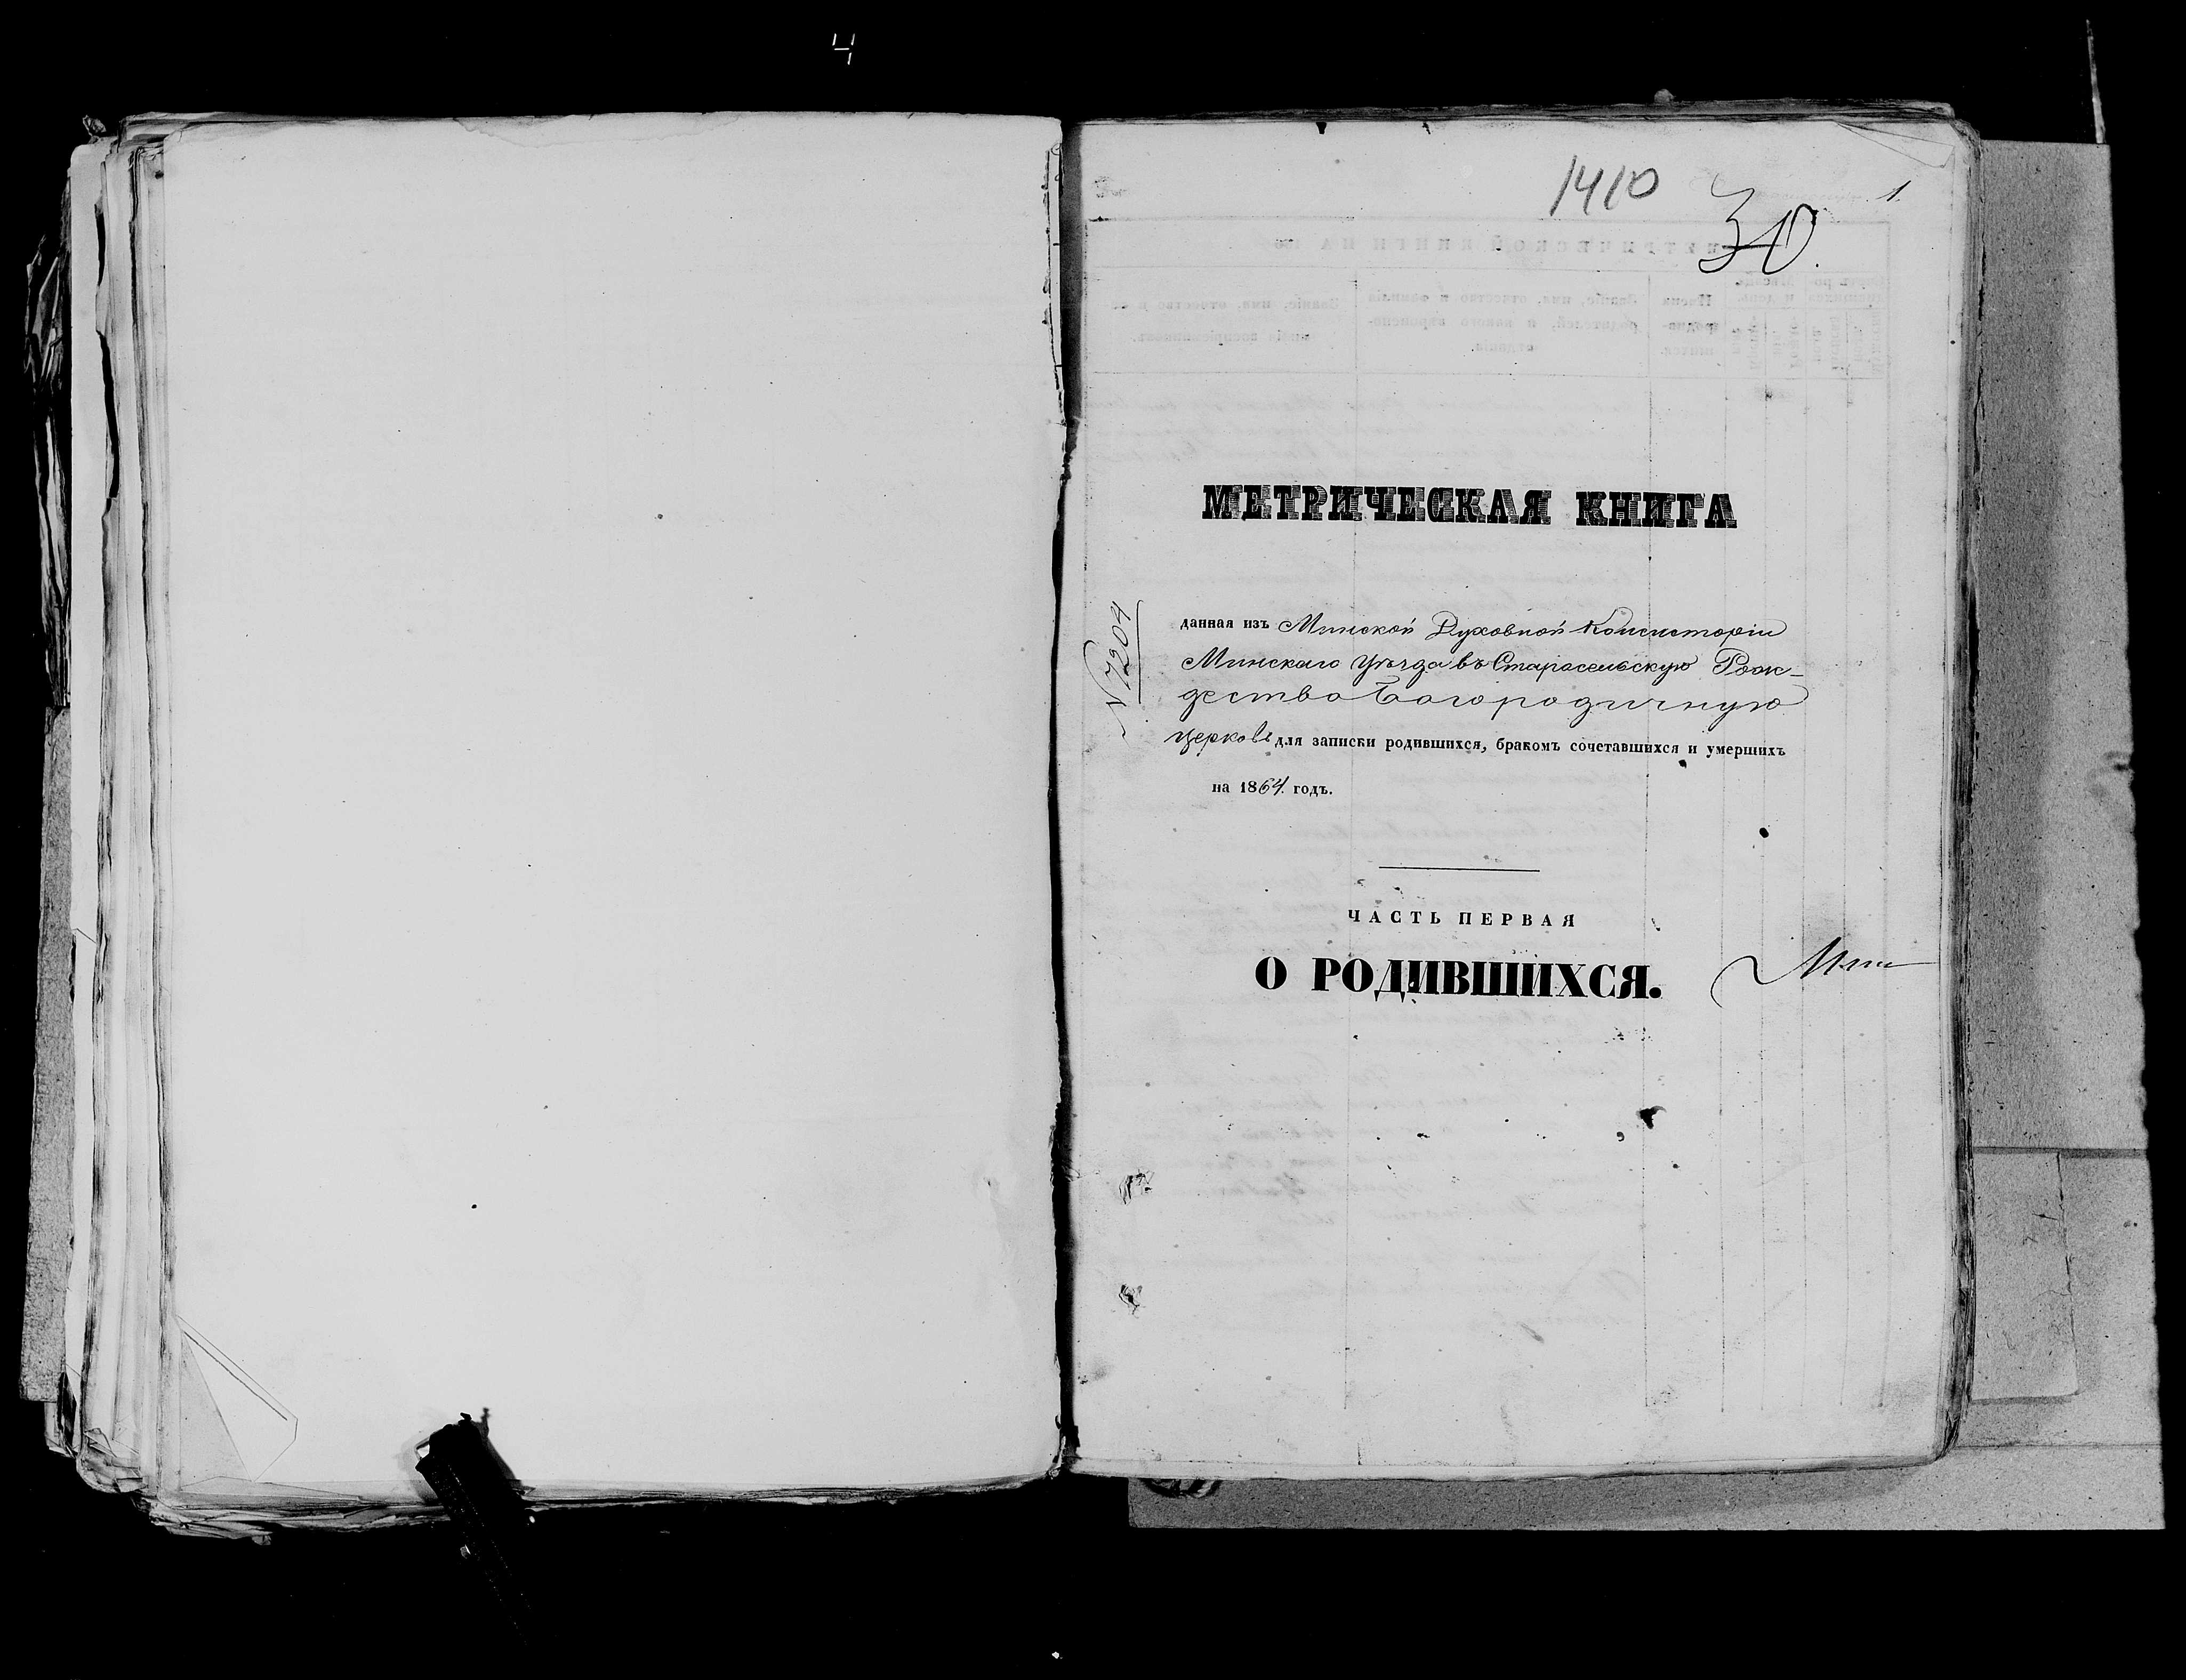 4
1410
30.
1.
МЕТРИЧЕСКАЯ КНИГА
№ 7204
данная изъ Минской Духовной Консисторіи
Минскаго уѣзда въ Старосельскую Рож-
дество Богородичную
церковь для записки родившихся, бракомъ сочетавшихся и умершихъ
на 1864. годъ.
ЧАСТЬ ПЕРВАЯ
О РОДИВШИХСЯ.